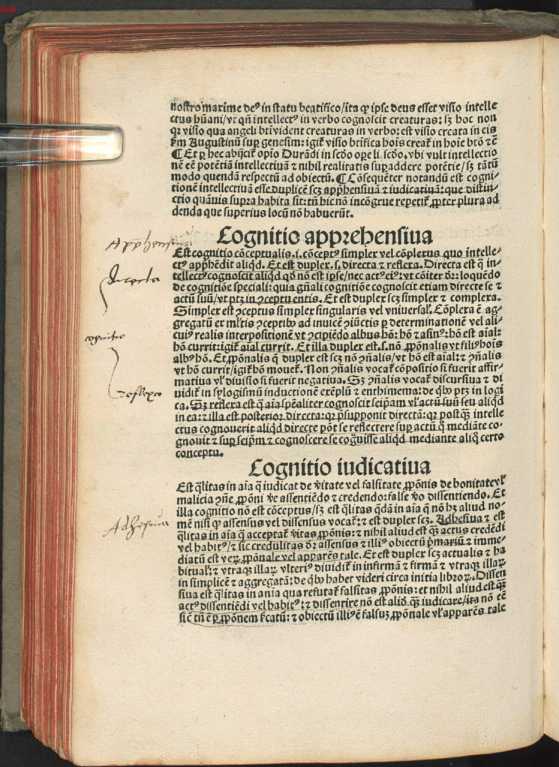 nostro maxime de⁹ in statu beatifico/ita ꝙ ipse deus esset visio intelle
ctus hūani/vt qn̄ intellect⁹ in verbo cognoscit creaturas: sꝫ hoc non
ꝙ visio qua angeli bt̄i vident creaturas in verbo: est visio creata in eis
ẜm Augustinū suꝑ genesim: igit̄ visio btīfica hoīs creat̄ in hoīe btō ē
¶ Et ꝑ hec abijcit̄ opīo Durādi in scdō ope li. scdo. vbi vult intellectio
nē eē potētiā intellectiuā ⁊ nihil realitatis suꝑaddere potētie/sꝫ tātū
modo quendā respectū ad obiectū. ¶ Cōsequēter notandū est cogni
tionē intellectiuā esse duplicē scꝫ app̄hensiuā ⁊ iudicatiuā: que distin
ctio quāuis supra habita sit: tn̄ hic nō incōgrue repetit̄ ꝓpter plura ad
denda que superius locū nō habuerūt.
Cognitio apprehensiua
Est cognitio cōceptualis .i. cōcept⁹ simplex vel cōplexus quo intelle
ct⁹ app̄hēdit aliqd. Et est duplex .s. directa ⁊ reflexa. Directa est q̄ in
tellect⁹ cognoscit aliqd qd nō est ipse/nec act⁹ ei⁹: vt cōiter dr: loquēdo
de cognitiōe speciali: quia gn̄ali cognitiōe cognoscit etiam directe se ⁊
actū suū/vt ptꝫ in ꝯceptu entis. Et est duplex scꝫ simplex ⁊ complexa.
Simplex est ꝯceptus simplex singularis vel vniuersal̄. Cōplexa ē ag-
gregatū er ml̄tis ꝯceptib⁹ ad inuicē ꝯiūctis ꝑ determinationē vel ali
cui⁹ realis interpositionē vt ꝯcipiēdo albus hō: hō ⁊ asin⁹: hō est aīal:
hō currit: igit̄ aīal currit. Et illa duplex est .s. nō ꝓpōnalis vt fili⁹ hoīs
alb⁹ hō. Et ꝓpōnalis q̄ duplex est scꝫ nō ꝯn̄alis/vt hō est aīal: ⁊ ꝯn̄alis
vt hō currit/igit̄ hō mouet̄. Non ꝯn̄alis vocat̄ cōpositio si fuerit affir-
matiua vl̄ diuisio si fuerit negatiua. Sꝫ ꝯn̄alis vocat̄ discursiua ⁊ di
uidit̄ in sylogismū inductionē exēplū ⁊ enthimema: de qb⁹ ptꝫ in logi
ca. Sꝫ reflexa est q̄ aīa spāliter cognoscit seip̄am vl̄ actū suū seu aliqd
in ea: ⁊ illa est posterior directa: qꝛ p̄supponit directā: qꝛ postq̄ intelle
ctus cognouerit aliqd directe pōt se reflectere suꝑ actū q̄ mediāte co-
gnouit ⁊ suꝑ seip̄m ⁊ cognoscere se cogn̄uisse aliqd mediante aliq̄ certo
conceptu.
Cognitio iudicatiua
Est q̄litas in aīa q̄ iudicat de v̄itate vel falsitate ꝓpōnis de bonitate vl̄
malicia ꝯn̄e ꝓpōni v̄e assentiēdo ⁊ credendo: false v̄o dissentiendo. Et
illa cognitio nō est cōceptus/sꝫ est q̄litas qdā in aīa q̄ nō hꝫ aliud no-
mē nisi ꝙ assensus vel dissensus vocat̄: ⁊ est duplex scꝫ. Adhesiua ⁊ est
q̄litas in aīa q̄ acceptat̄ v̄itas ꝓpōnis: ⁊ nihil aliud est q̄ꝫ actus credēdi
vel habit⁹/⁊ sic credulitas dr̄: assensus ⁊ illi⁹ obiectū p̄mariū ⁊ imme-
diatū est vex̄ ꝓpōnale vel apparēs tale. Et est duplex scꝫ actualis ⁊ ha
bitual̄: ⁊ vtraqꝫ illaꝝ vlteri⁹ diuidit̄ in infirmā ⁊ firmā ⁊ vtraqꝫ illaꝝ
in simplicē ⁊ aggregatā: de qb⁹ haber videri circa initia libroꝝ. Dissen
siua est q̄litas in anīa qua refutat̄ falsitas ꝓpōnis: et nihil aliud est q̄ꝫ
act⁹ dissentiēdi vel habit⁹: ⁊ dissentire nō est aliō q̄ꝫ iudicare/ita nō eē
sic ē tn̄ ē ꝑ ꝓpōnem s̄catū: ⁊ obiectū illi⁹ ē falsuꝫ ꝓpōnale vl̄ apparēs tale
directa
reflexa
Adhesiua